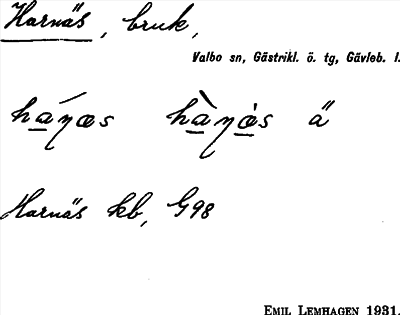 Harnäs, bruk,
Valbo sn, Gästrikl. ö. tg, Gävleb. l.
ä
Harnäs kb, G98
EMIL LEMHAGEN 1931.